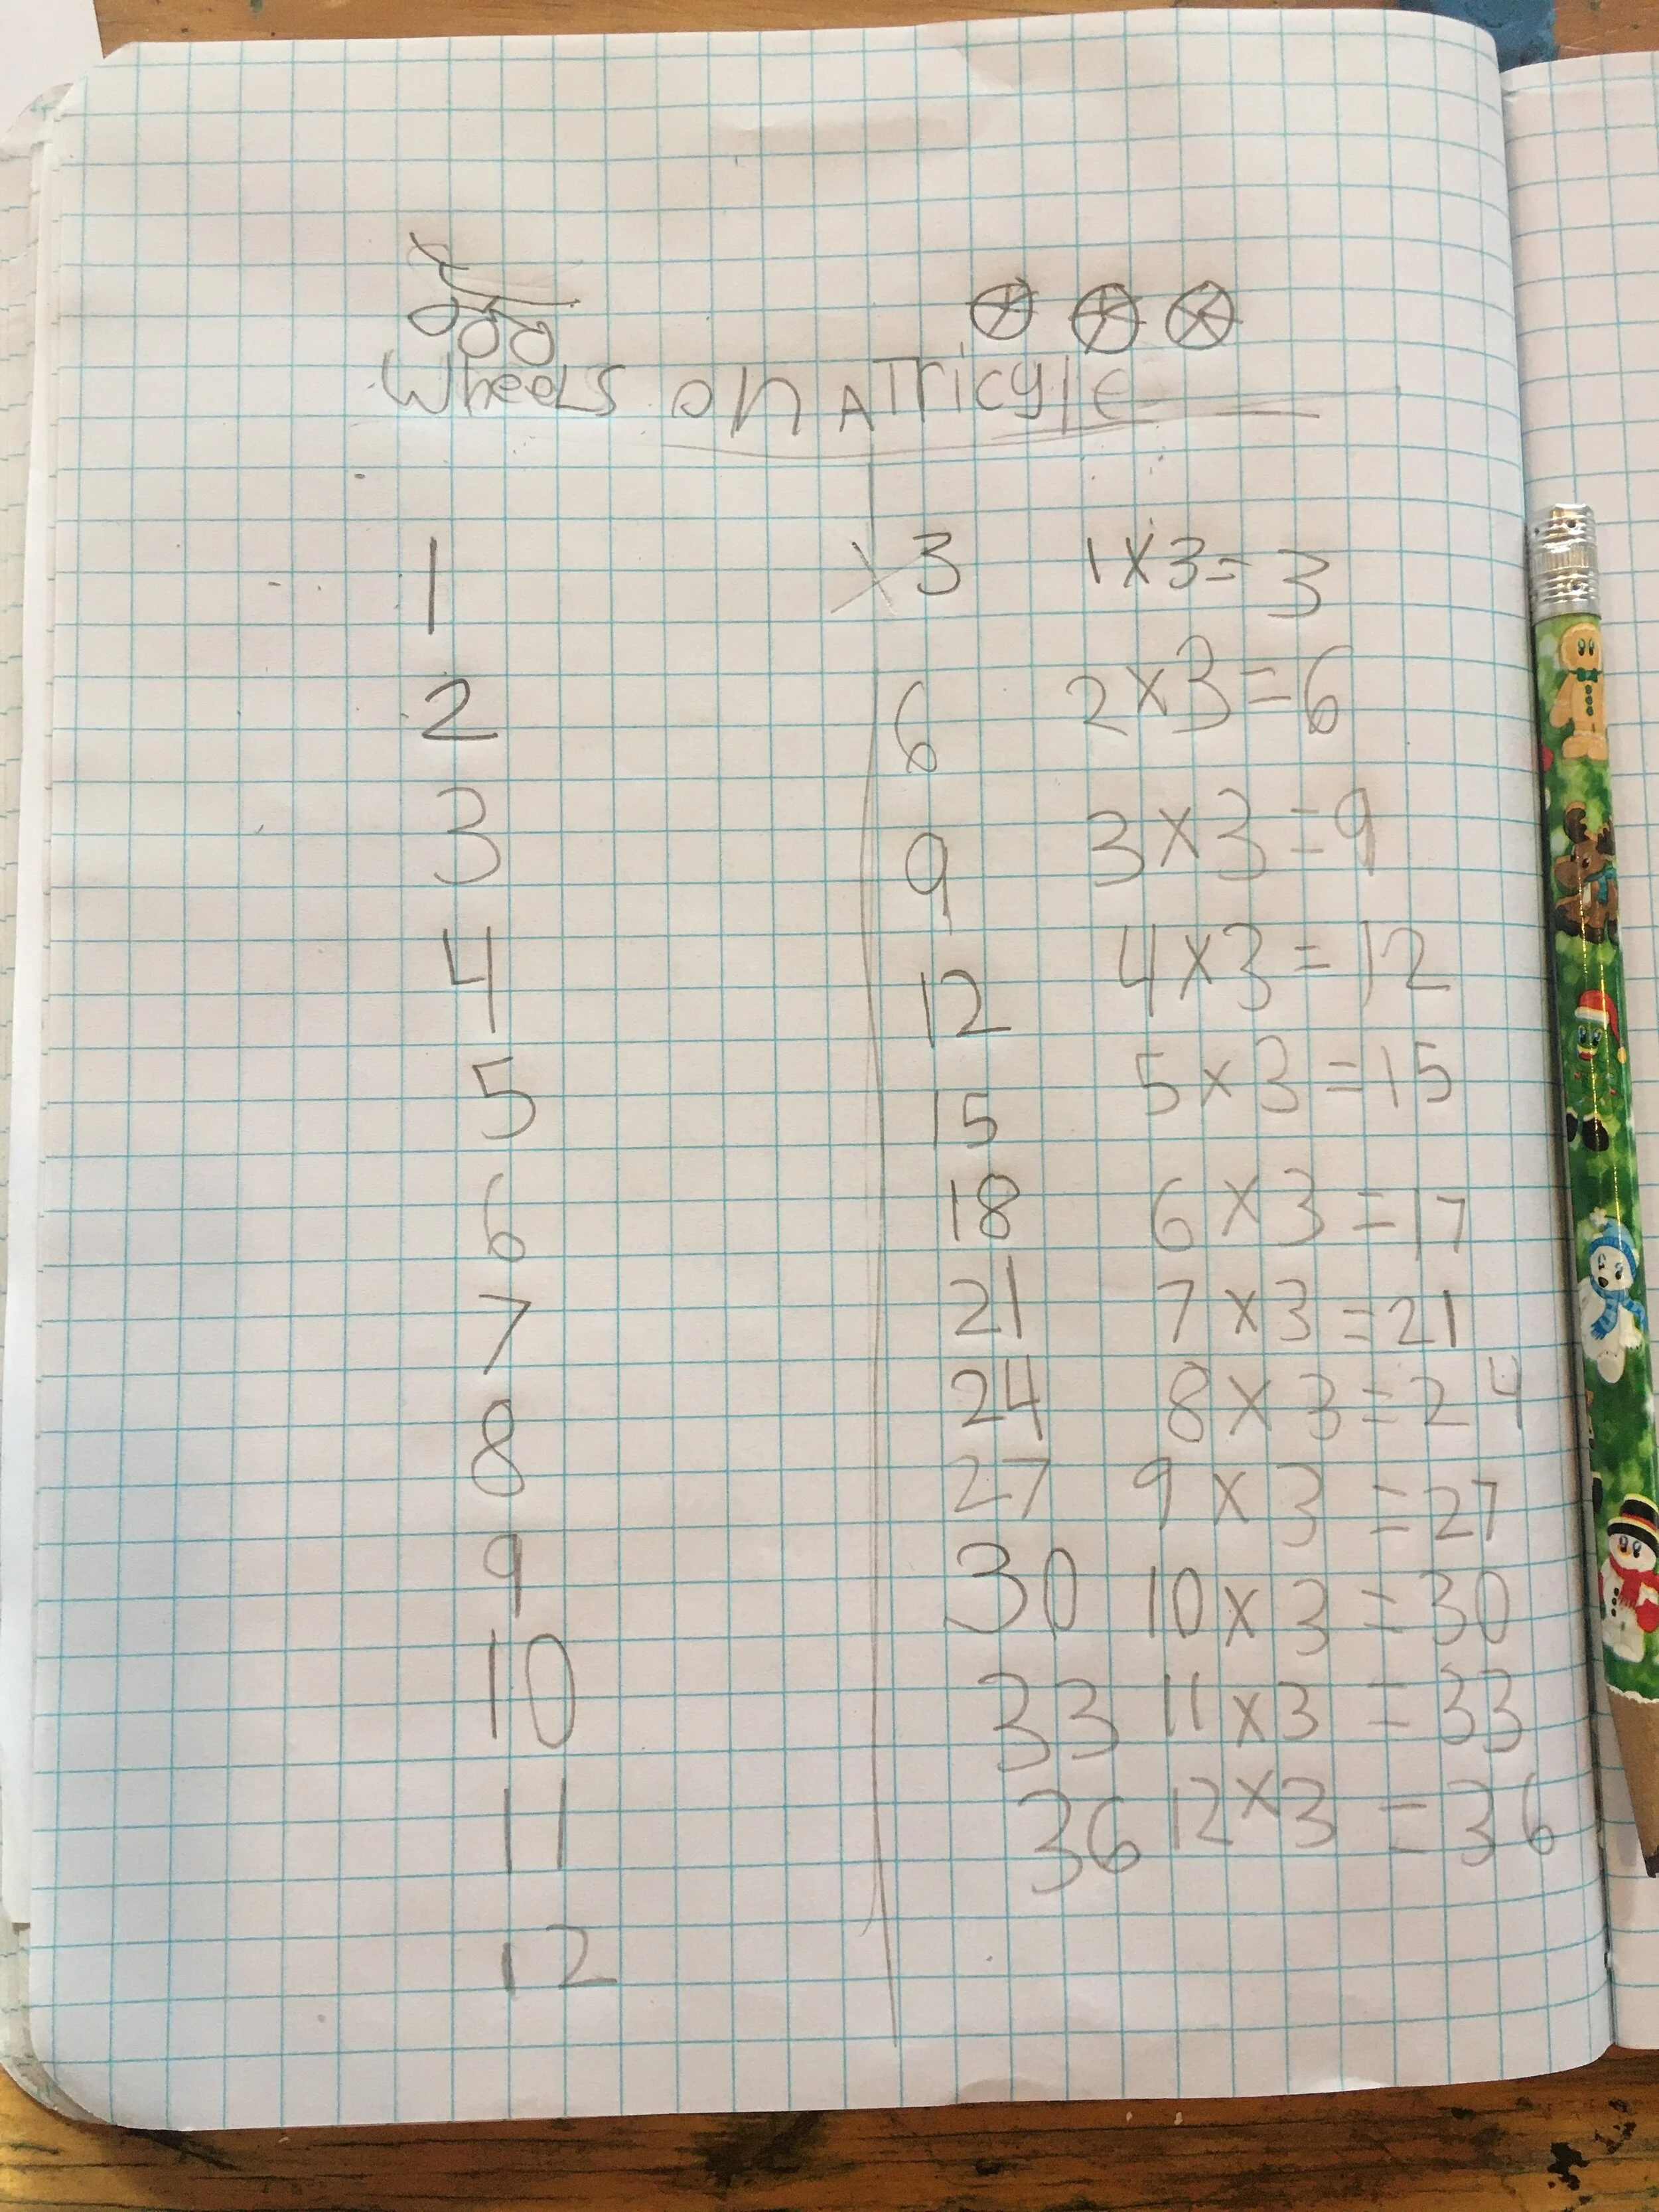 Wheels on A Tricyle
1 x 3 1x3= 3
2 6 2x3=6
3 9 3x3=9
4 12 4x3=12
5 15 5x3=15
6 18 6x3=17
7 21 7x3=21
8 24 8x3=24
9 27 9x3=27
10 30 10x3=30
11 33 11x3=33
12 36 12x3=36